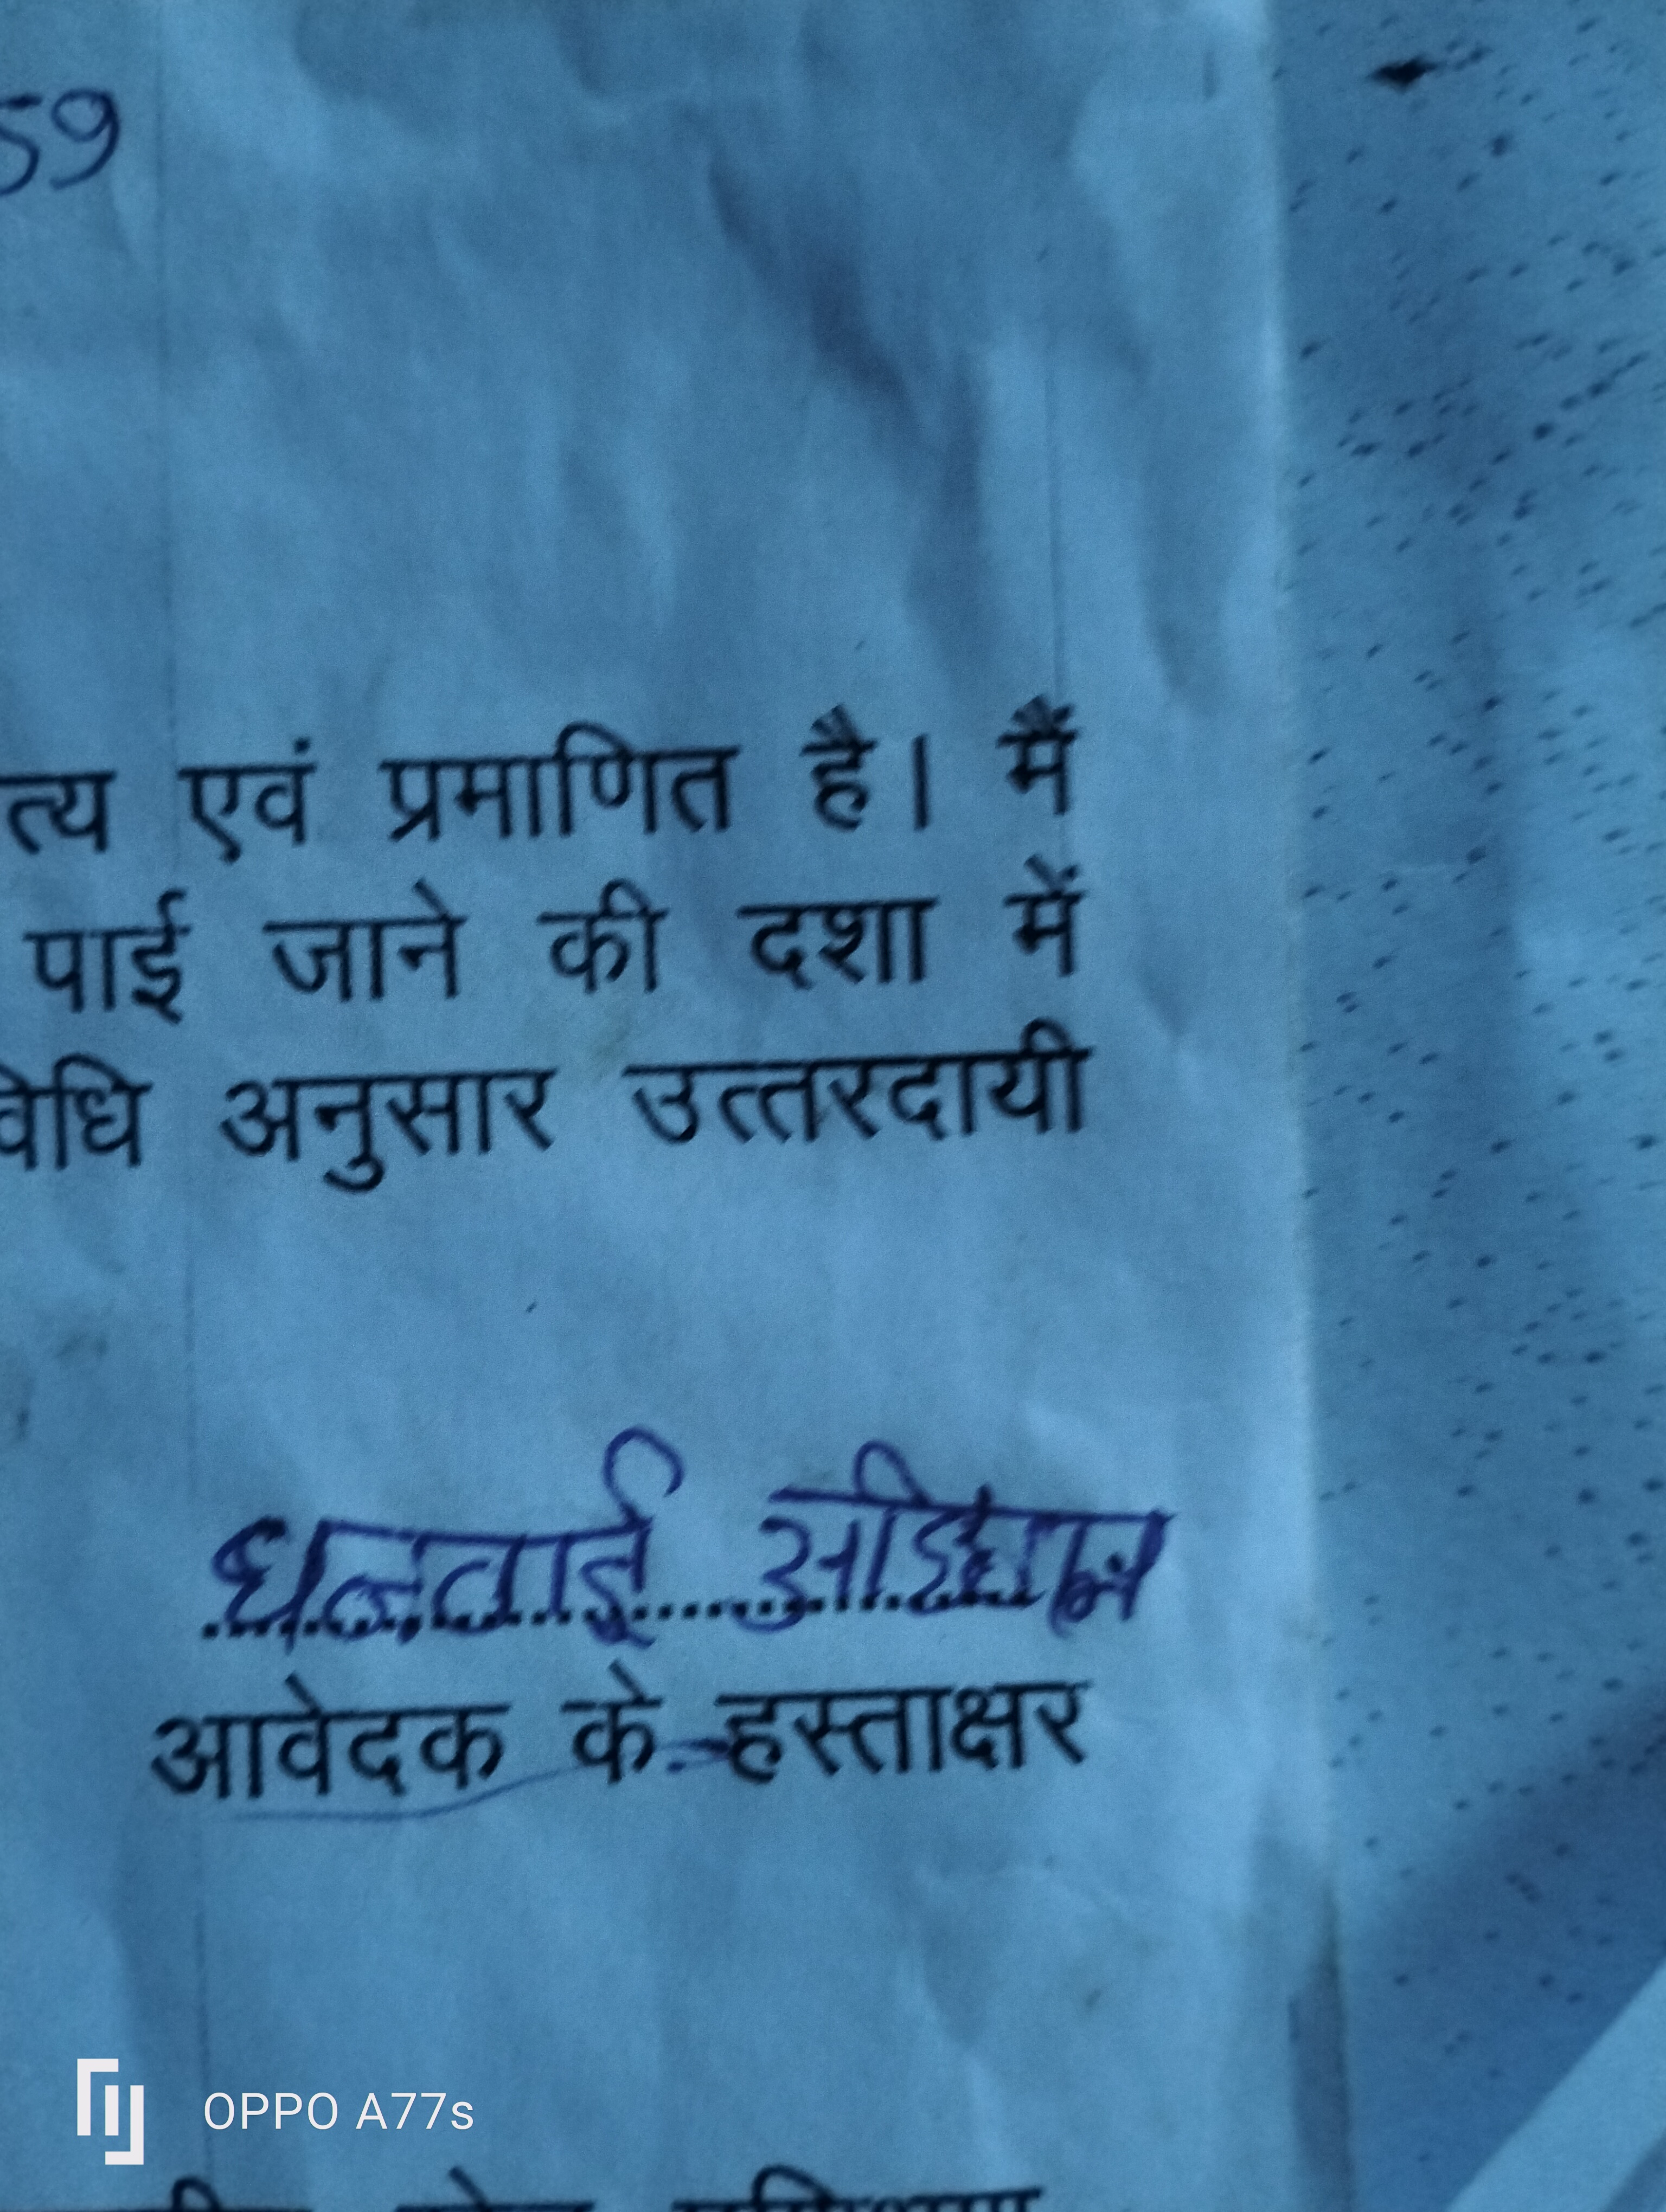 59
त्य एवं प्रमाणित है। मैं
पाई जाने की दशा में
विधि अनुसार उत्तरदायी
धनवाई
आवेदक के हस्ताक्षर
OPPO A77s